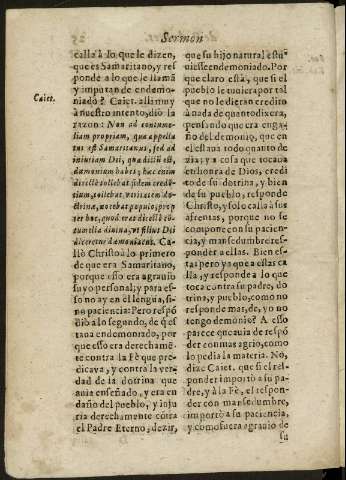 Sermon
Caiet.
calla à lo que le dizen,
que es Samaritano, y res
ponde a lo que le llamã
y imputan de endemo-
niado? Caiet. alli muy
à nuestro intento, dio la
razon: Non ad contume-
liam propriam, qua appella
tus est Samaritanus, sed ad
iniuriam Dei, qua dictũ est,
dæmonium habes; hæc enim
directè tollebat fidem credẽ-
tium, tollebat veritatem do-
ctrinæ, nocebat populo, prop
ter hoc, quod erat directè cõ-
tumelia diuina, vt filius Dei
diceretur dæmoniacus. Ca-
llò Christo à lo primero
de que era Samaritano,
porque esso era agrauio
suyo personal; y para es-
so no ay en el lengua, si-
no paciencia: Pero respõ
dio a lo segundo, de q̃ es
taua endemoniado, por
que esso era derechamẽ-
te contra la Fè que pre-
dicaua, y contra la ver-
dad de la dotrina que
auia enseñado, y era en
daño del pueblo, y inju
ria derechamente cõtra
el Padre Eterno; dezir,
que su hijo natural estu-
uiesse endemoniado. Por
que claro està, que si el
pueblo le tuuiera por tal
que no le dieran credito
à nada de quanto dixera,
pensando que era enga-
ño del demonio, que en
el estaua todo quanto de
zia; y a cosa que tocaua
en honra de Dios, credi
to de su dotrina, y bien
de su pueblo, responde
Christo, y à solo calla à sus
afrentas, porque no se
compone con su pacien-
cia, y mansedumbre res-
ponder a ellas. Bien es-
tas pero ya que a ellas ca
lla, y responde a lo que
toca contra su padre, do
trina, y pueblo, como no
responde mas, de, yo no
tengo demonio? A esso
parece que auia de respõ
der con mas agrio, como
lo pedia la materia. No,
dize Caiet. que si el res-
ponder importò a su pa-
dre, y à la Fè, el respon-
der con mansedumbre,
importò a su paciencia,
y como fuera agrauio de
su